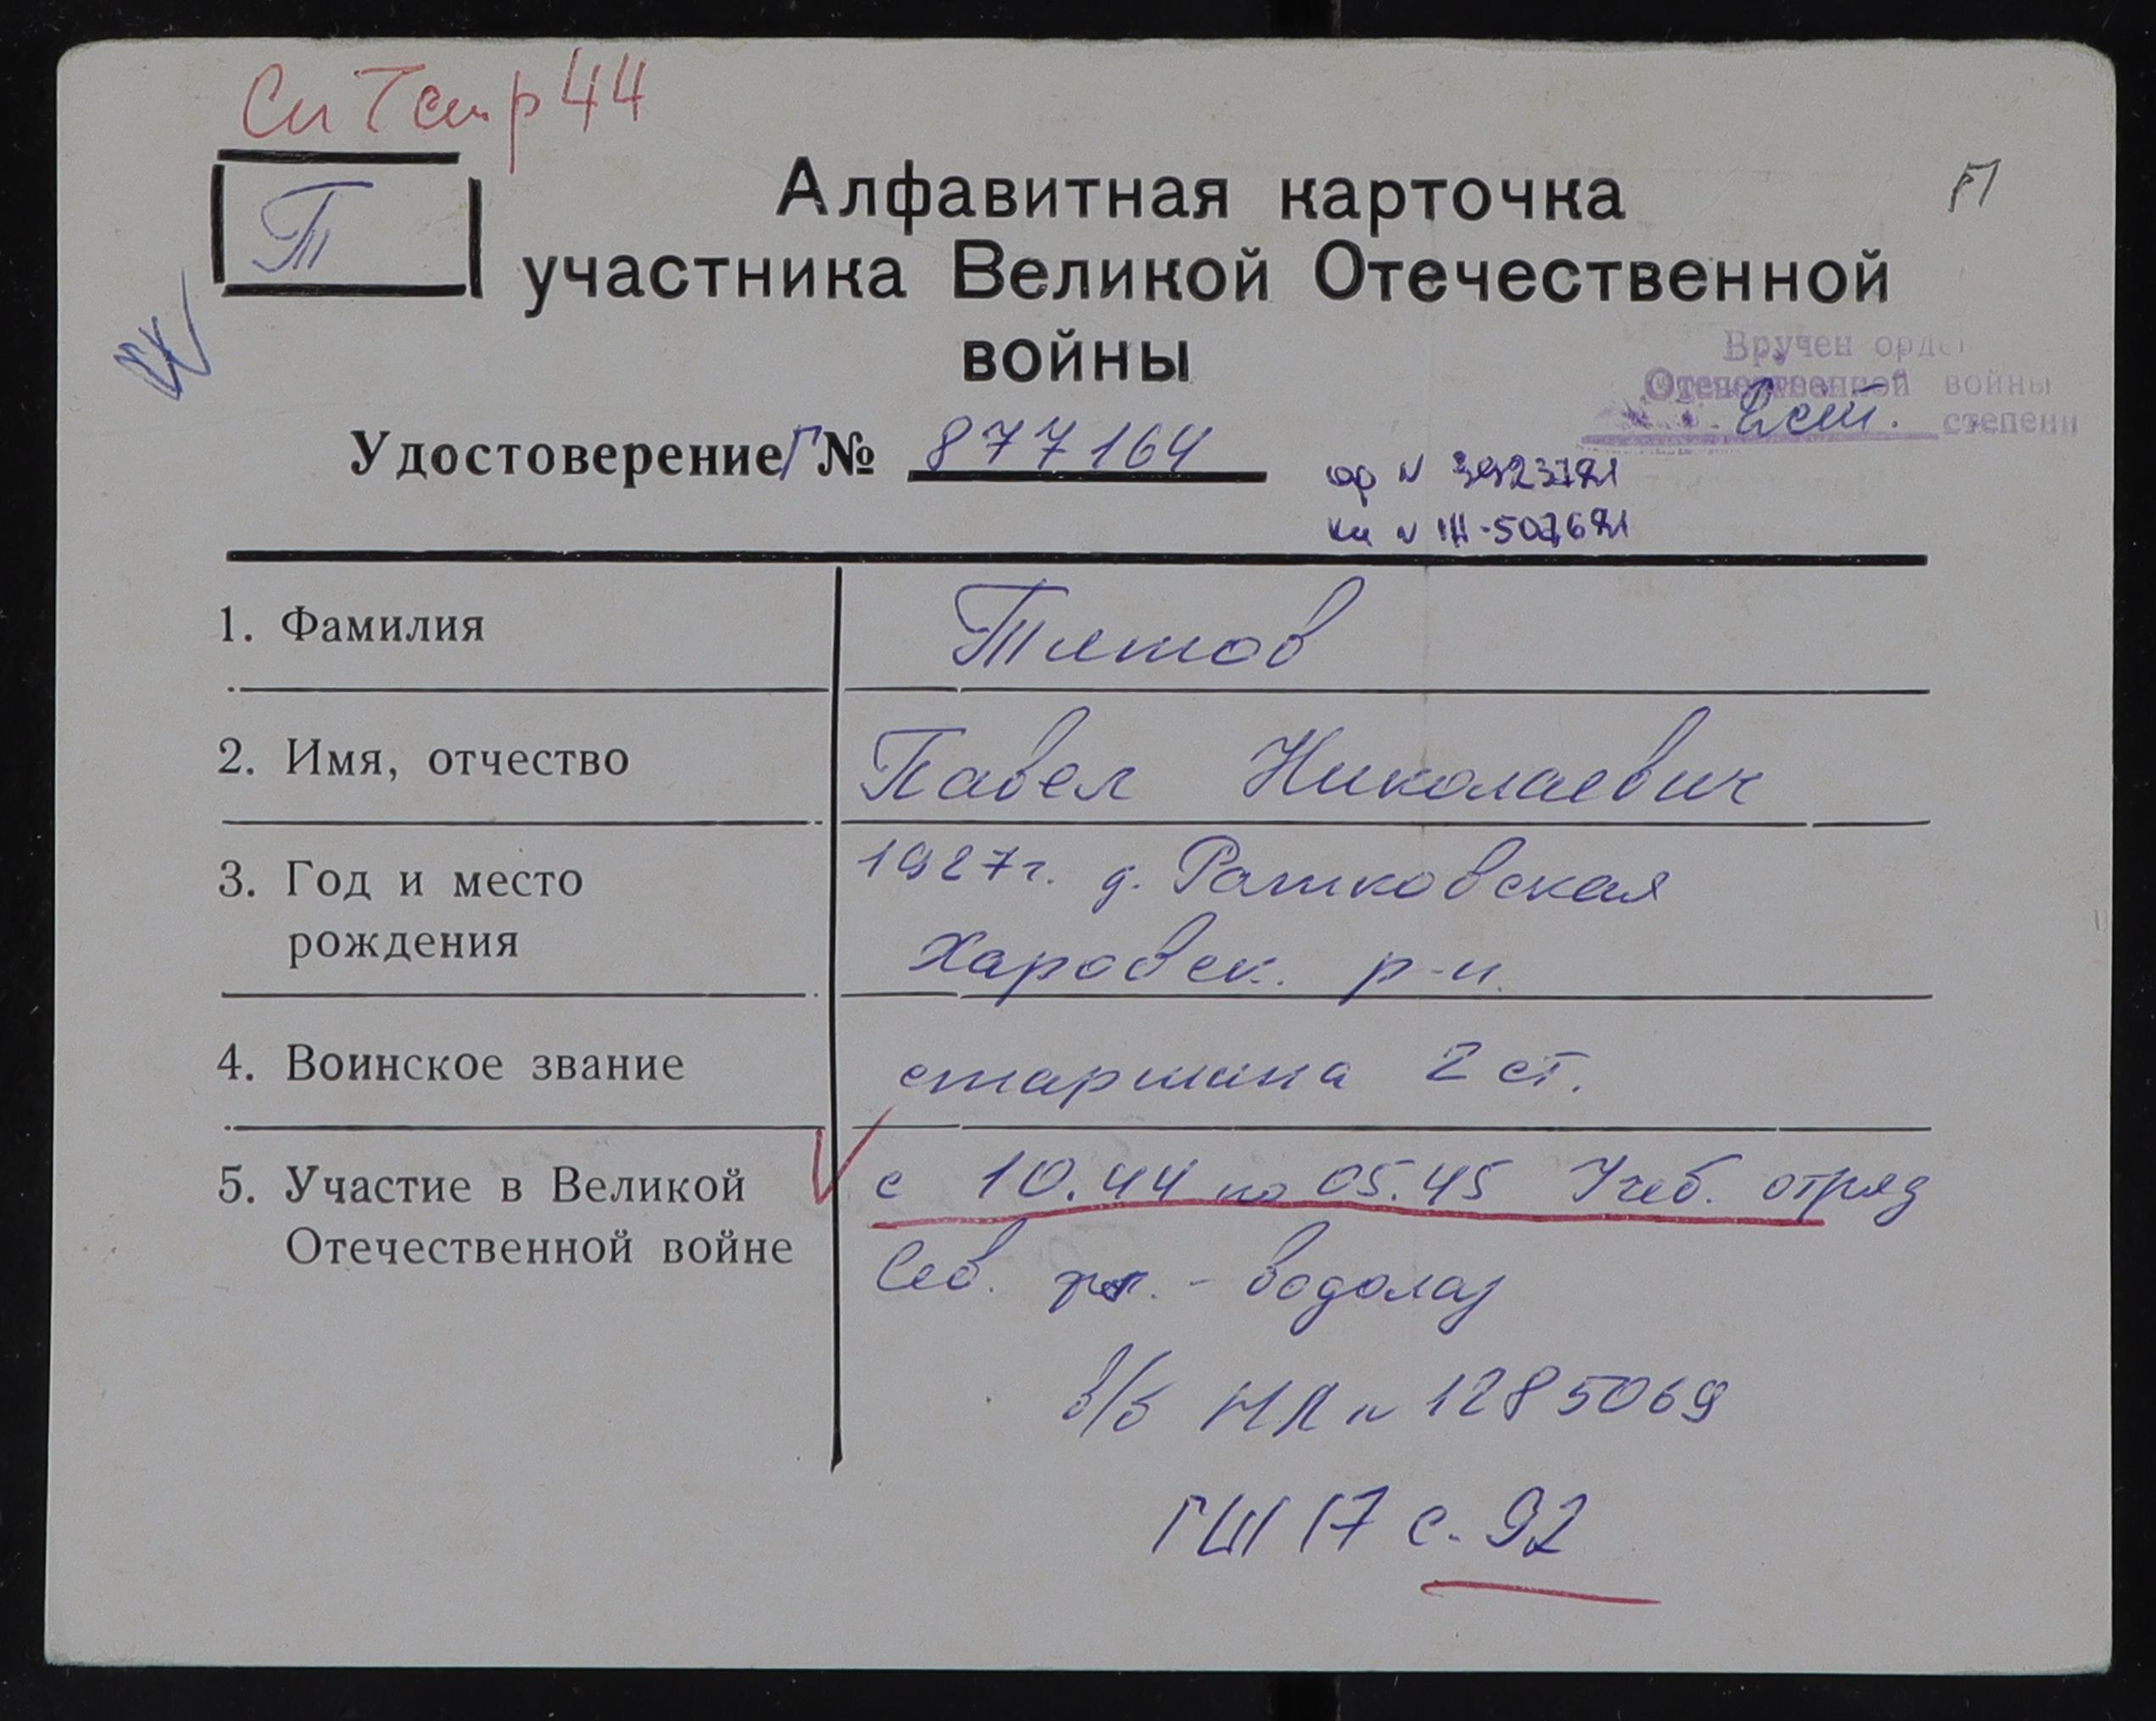 Т
Алфавитная карточка
участника Великой Отечественной
войны
Вручен орден
Отечественной войны
2 ст. степени
Удостоверение Г № 877164
ор №
кн № III-
1. Фамилия
Титов
2. Имя, отчество
Павел Николаевич
3. Год и место
рождения
1927г. д. Ратковская
Харовск. р-н.
4. Воинское звание
старшина 2 ст.
5. Участие в Великой
Отечественной войне
с 10.44 по 05.45 Учеб. отряд
Сев. фл. - водолаз
в/б НЛ № 1285069
ГШ 17 с. 92